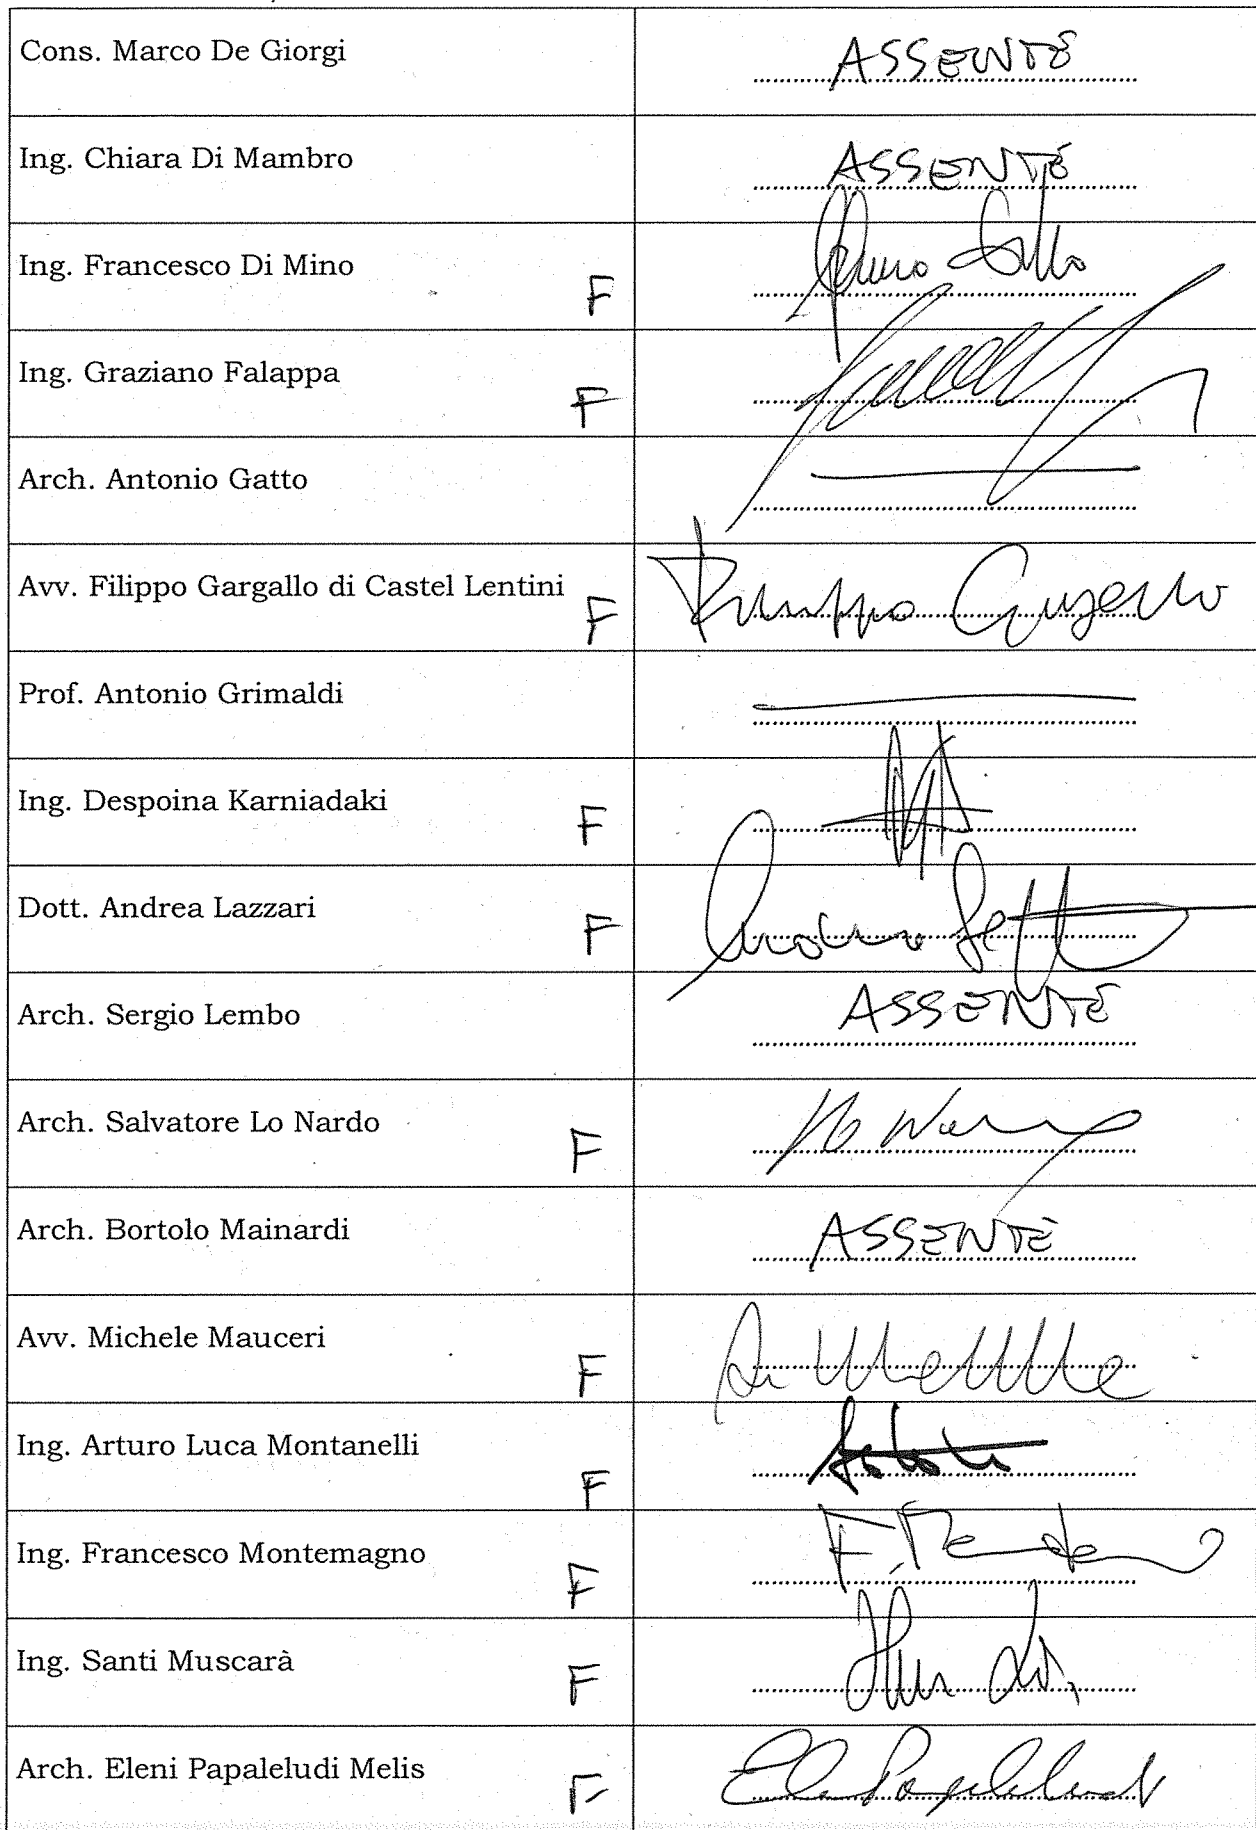 Cons. Marco De Giorgi ASSENTE
Ing. Chiara Di Mambro ASSENTE
Ing. Francesco Di Mino F
Ing. Graziano Falappa F
Arch. Antonio Gatto
Avv. Filippo Gargallo di Castel Lentini F Filippo Gargallo
Prof. Antonio Grimaldi
Ing. Despoina Karniadaki F
Dott. Andrea Lazzari F
Arch. Sergio Lembo ASSENTE
Arch. Salvatore Lo Nardo F
Arch. Bortolo Mainardi ASSENTE
Avv. Michele Mauceri F
Ing. Arturo Luca Montanelli F
Ing. Francesco Montemagno F
Ing. Santi Muscarà F
Arch. Eleni Papaleludi Melis F